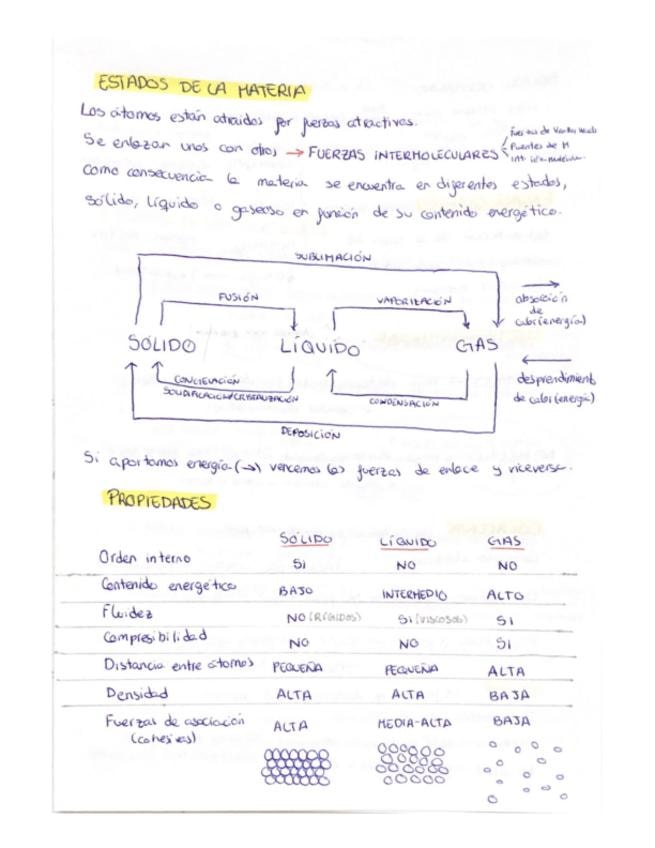 ESTADOS DE LA MATERIA
Los átomos están atraidos por fuerzas atractivas.
Se enlazan unos con otros → FUERZAS INTERMOLECULARES
Fuerzas de Van der Waals
Puentes de H
Como consecuencia la materia se encuentra en diferentes estados,
sólido, líquido o gaseoso en función de su contenido energético.
SUBLIMACIÓN
FUSIÓN VAPORIZACIÓN
absorción
de
calor (energía)
SÓLIDO LÍQUIDO GAS
desprendimiento
de calor (energía)
CONGELACIÓN
SOLIDIFICACIÓN/CRISTALIZACIÓN
CONDENSACIÓN
DEPOSICIÓN
Si aportamos energía (→) vencemos las fuerzas de enlace y viceversa.
PROPIEDADES
SÓLIDO LÍQUIDO GAS
Orden interno SI NO NO
Contenido energético BAJO INTERMEDIO ALTO
Fluidez NO (RÍGIDOS) SI (VISCOSOS) SI
Compresibilidad NO NO SI
Distancia entre átomos PEQUEÑA PEQUEÑA ALTA
Densidad ALTA ALTA BAJA
Fuerzas de asociación ALTA MEDIA-ALTA BAJA
(cohesivas)